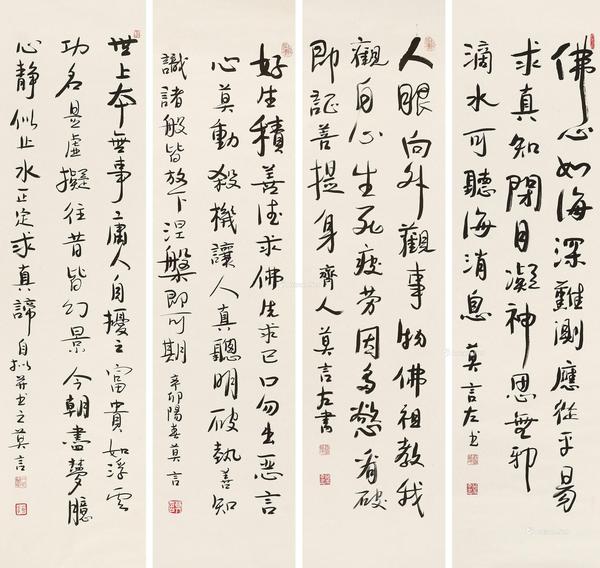 佛心如海深難測應從平易
求真知閉目凝神思無邪
滴水可聽海消息 莫言左书
人眼向外觀事物佛祖教我
觀自心生死疲劳因多慾看破
即証菩提身 齊人莫言左書
好生積善德求佛先求己口勿出惡言
心莫動殺機讓人真聰明破執善知
識諸般皆放下涅槃即可期 辛卯陽春莫言
世上本無事庸人自擾之富貴如浮雲
功名是虛擬往昔皆幻景今朝盡夢臆
心静似止水正定求真諦 自拟并书之莫言